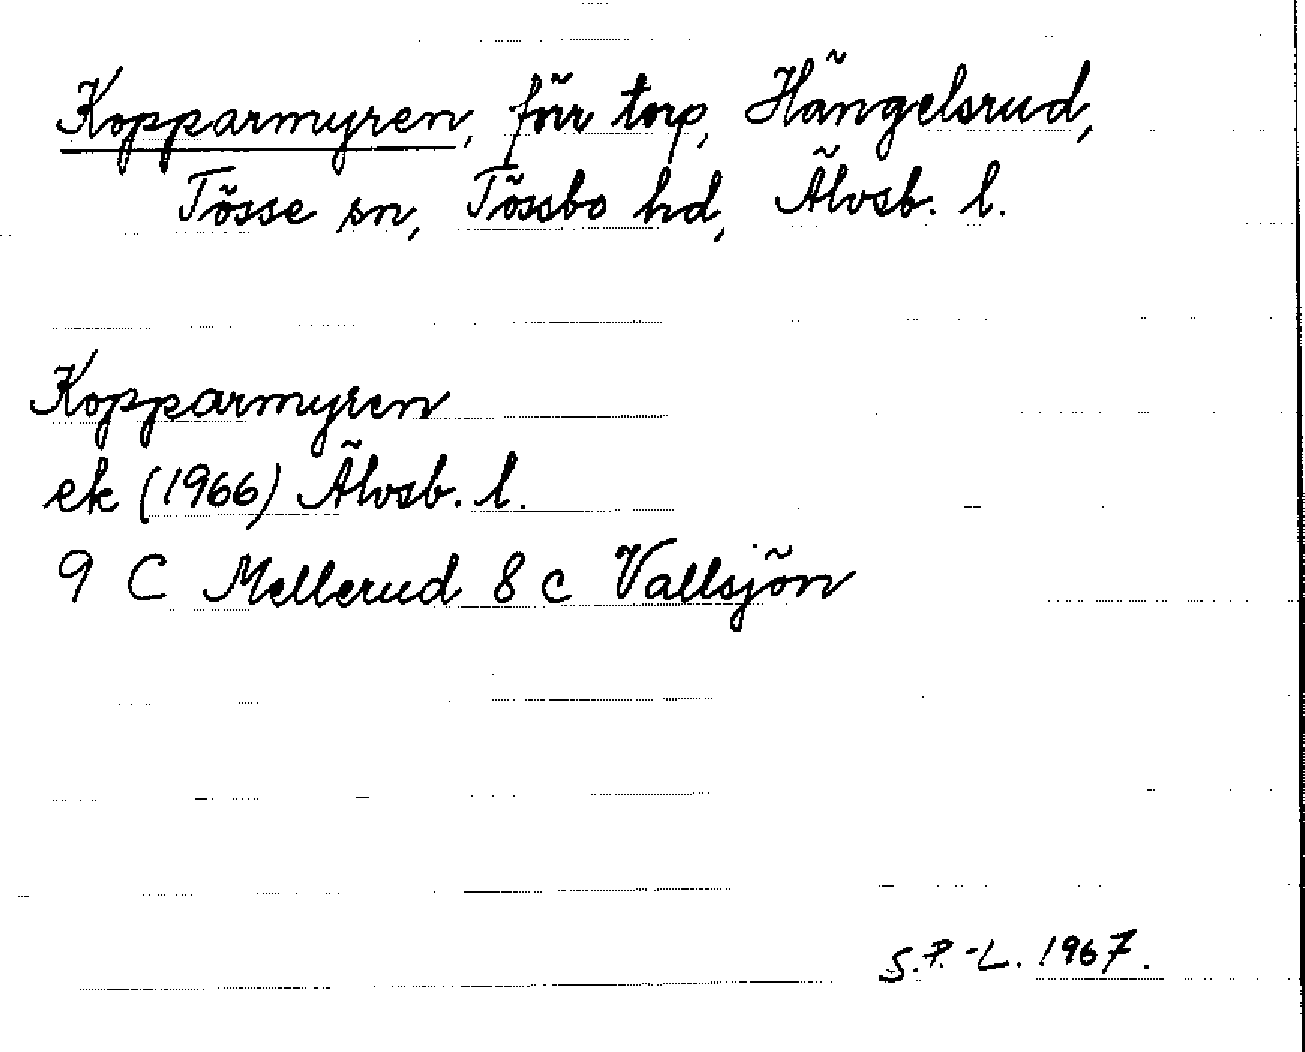 Kopparmyren, förr torp, Hängelsrud,
Tösse sn, Tössbo hd, Älvsb. l.
Kopparmyren
ek (1966) Älvsb. l.
9 C Mellerud 8 c Vallsjön
S.P.-L. 1967.